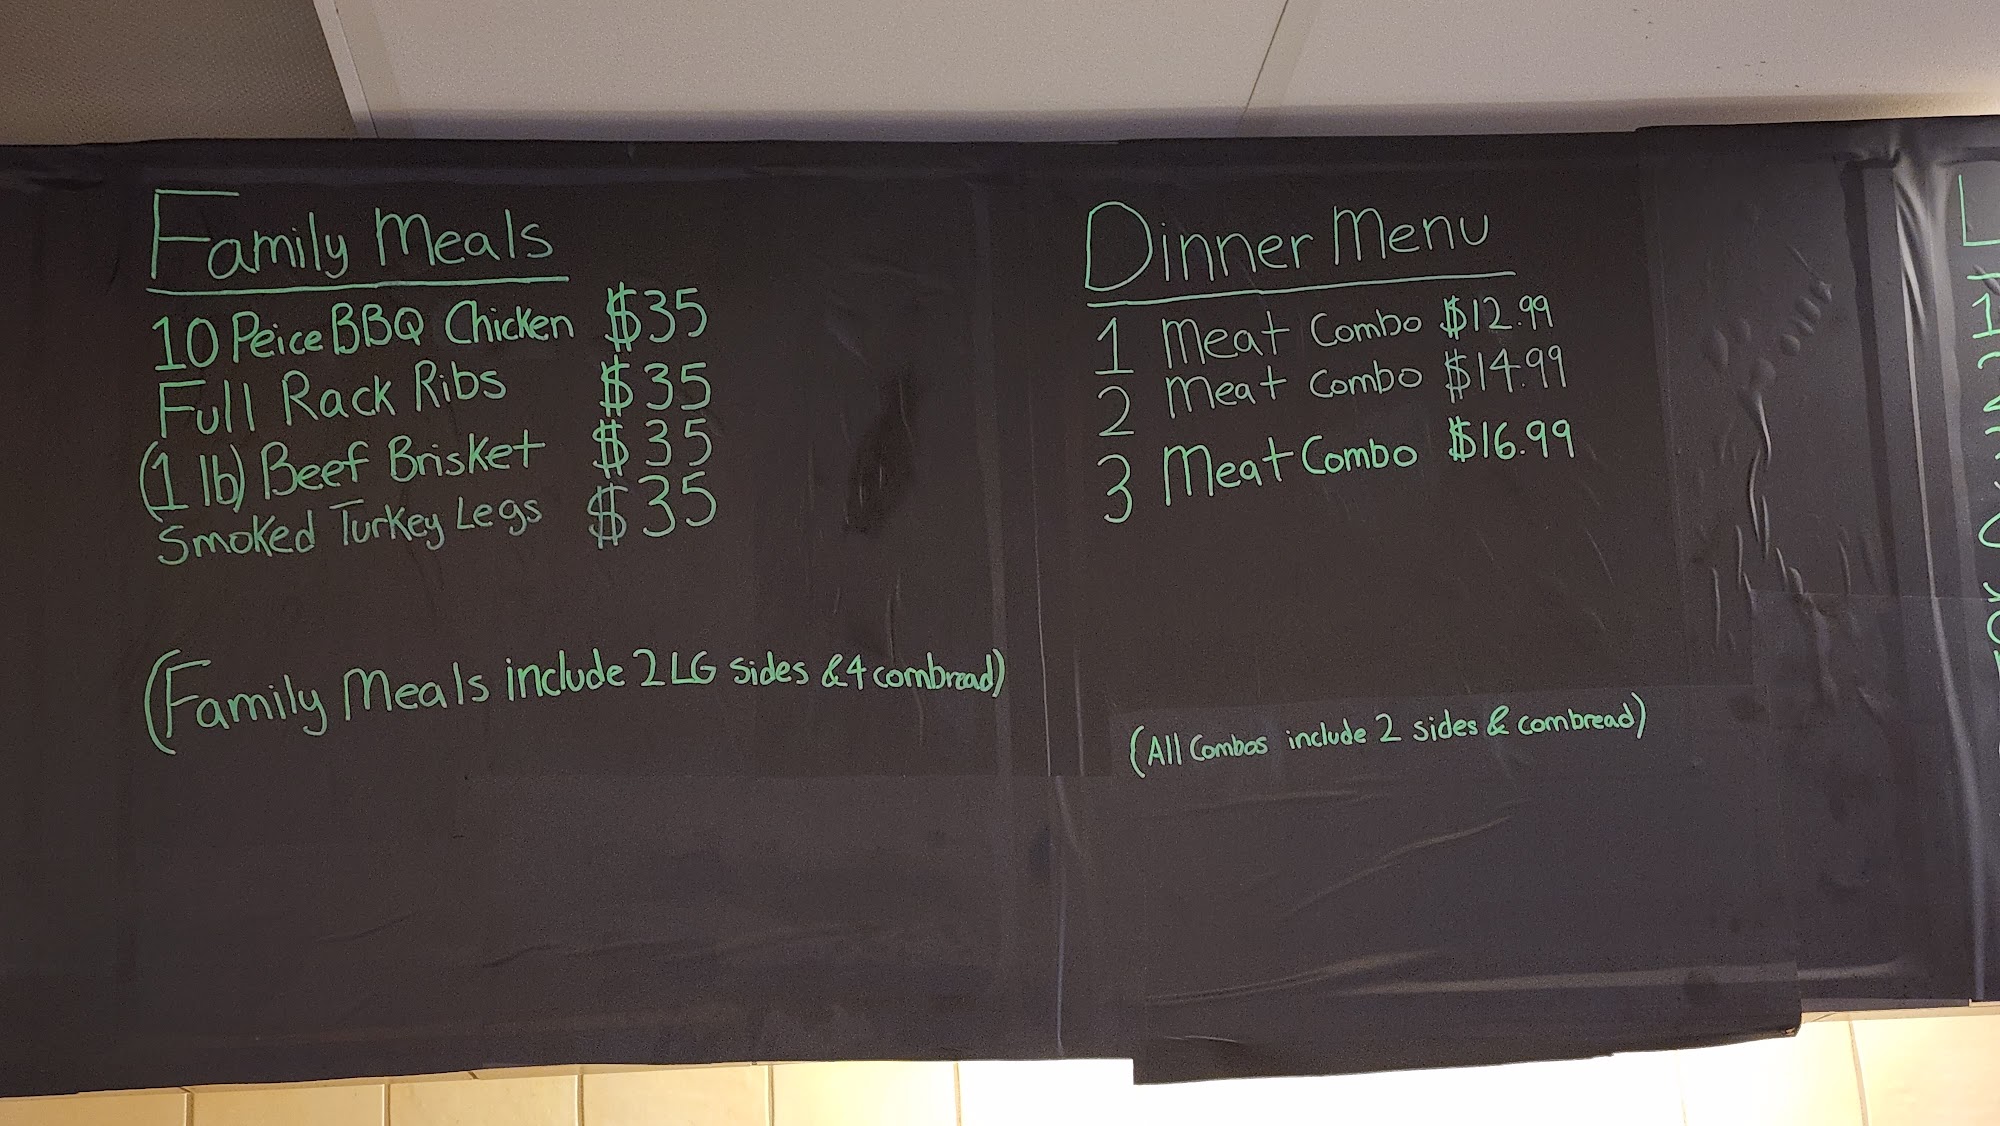 Family Meals
10 Peice BBQ Chicken $35
Full Rack Ribs $35
(1 lb) Beef Brisket $35
Smoked Turkey Legs $35
(Family Meals include 2 LG sides & 4 cornbread)
Dinner Menu
1 Meat Combo $12.99
2 Meat Combo $14.99
3 Meat Combo $16.99
(All Combos include 2 sides & cornbread)